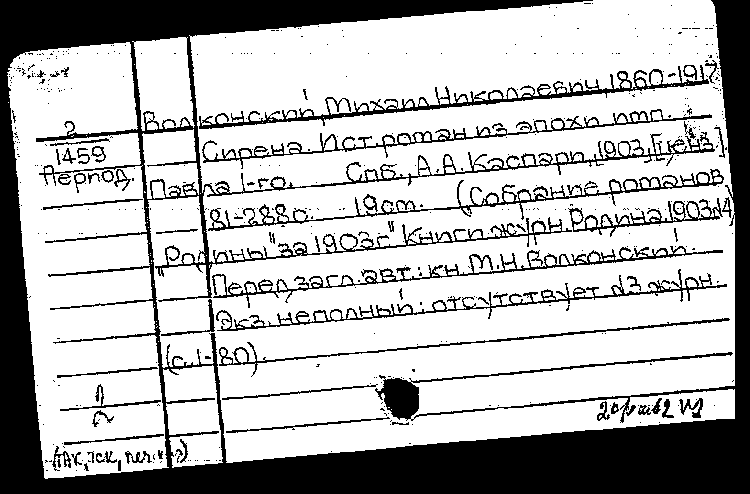 Волконский, Михаил Николаевич, 1860-1917
2
1459
Период.
Сирена. Ист. роман из эпохи имп.
Павла I-го. Спб., А.А. Каспари, 1903, [ценз.]
81-288с. 19см. (Собрание романов
"Родины" за 1903г" Книги журн. Родина. 1903 №4)
Перед загл. авт.: кн. М.Н. Волконский.
Экз. неполный: отсутствует №3 журн.
(с. 1-80).